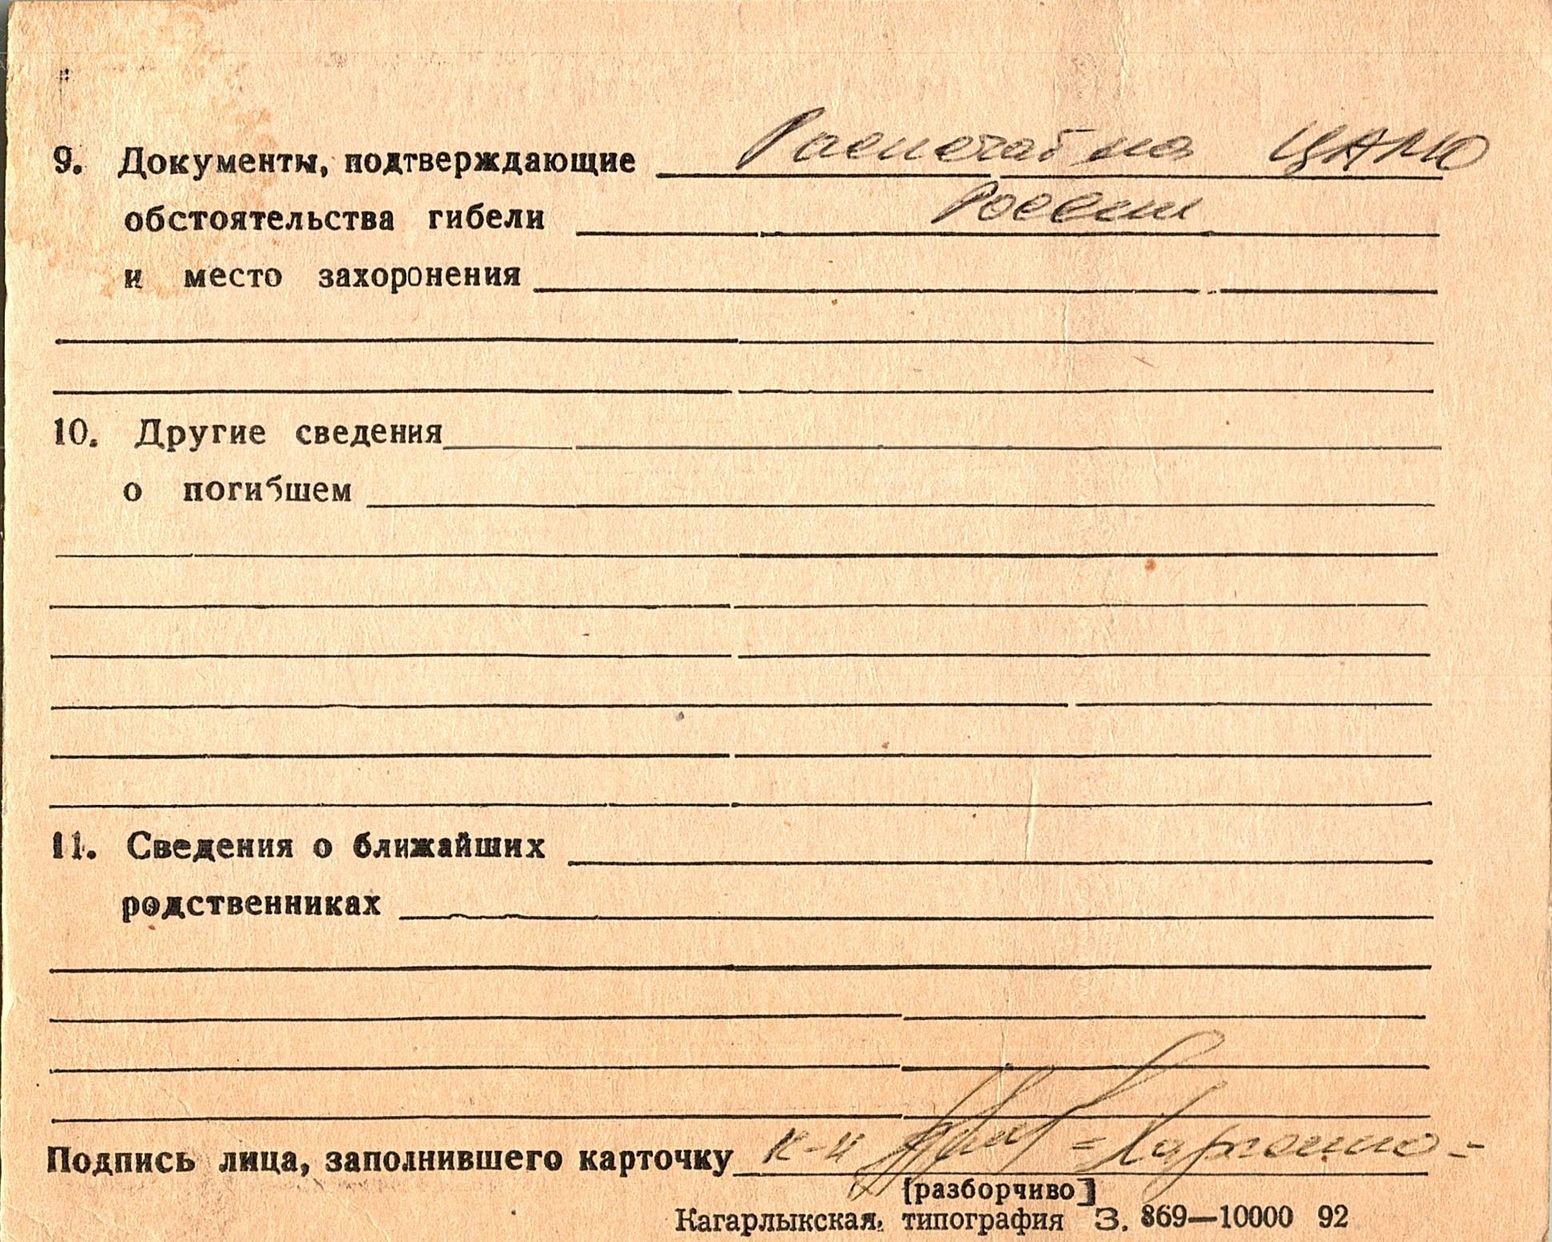 9. Документы, подтверждающие Распечатка ЦАМО
обстоятельства гибели России
и место захоронения
10. Другие сведения
о погибшем
11. Сведения о ближайших
родственниках
Подпись лица, заполнившего карточку к-н
[разборчиво]
Кагарлыкская, типография З. 869—10000 92